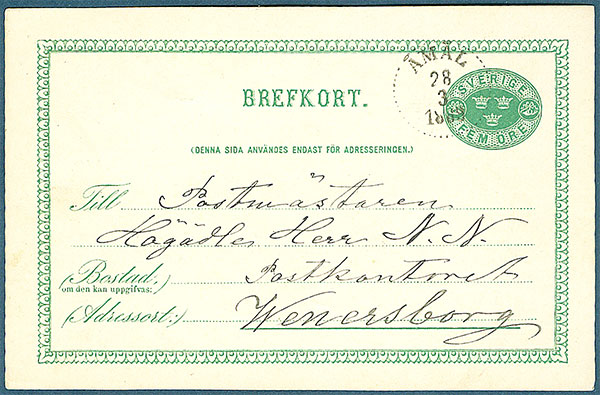 ÅMÅL
28
3
SVERIGE
FEM ÖRE
BREFKORT.
(DENNA SIDA ANVÄNDES ENDAST FÖR ADRESSERINGEN.)
Till Postmästaren
Högädle Herr N. N.
(Bostad.) Postkontoret
om den kan uppgifvas:
(Adressort:) Wenersborg